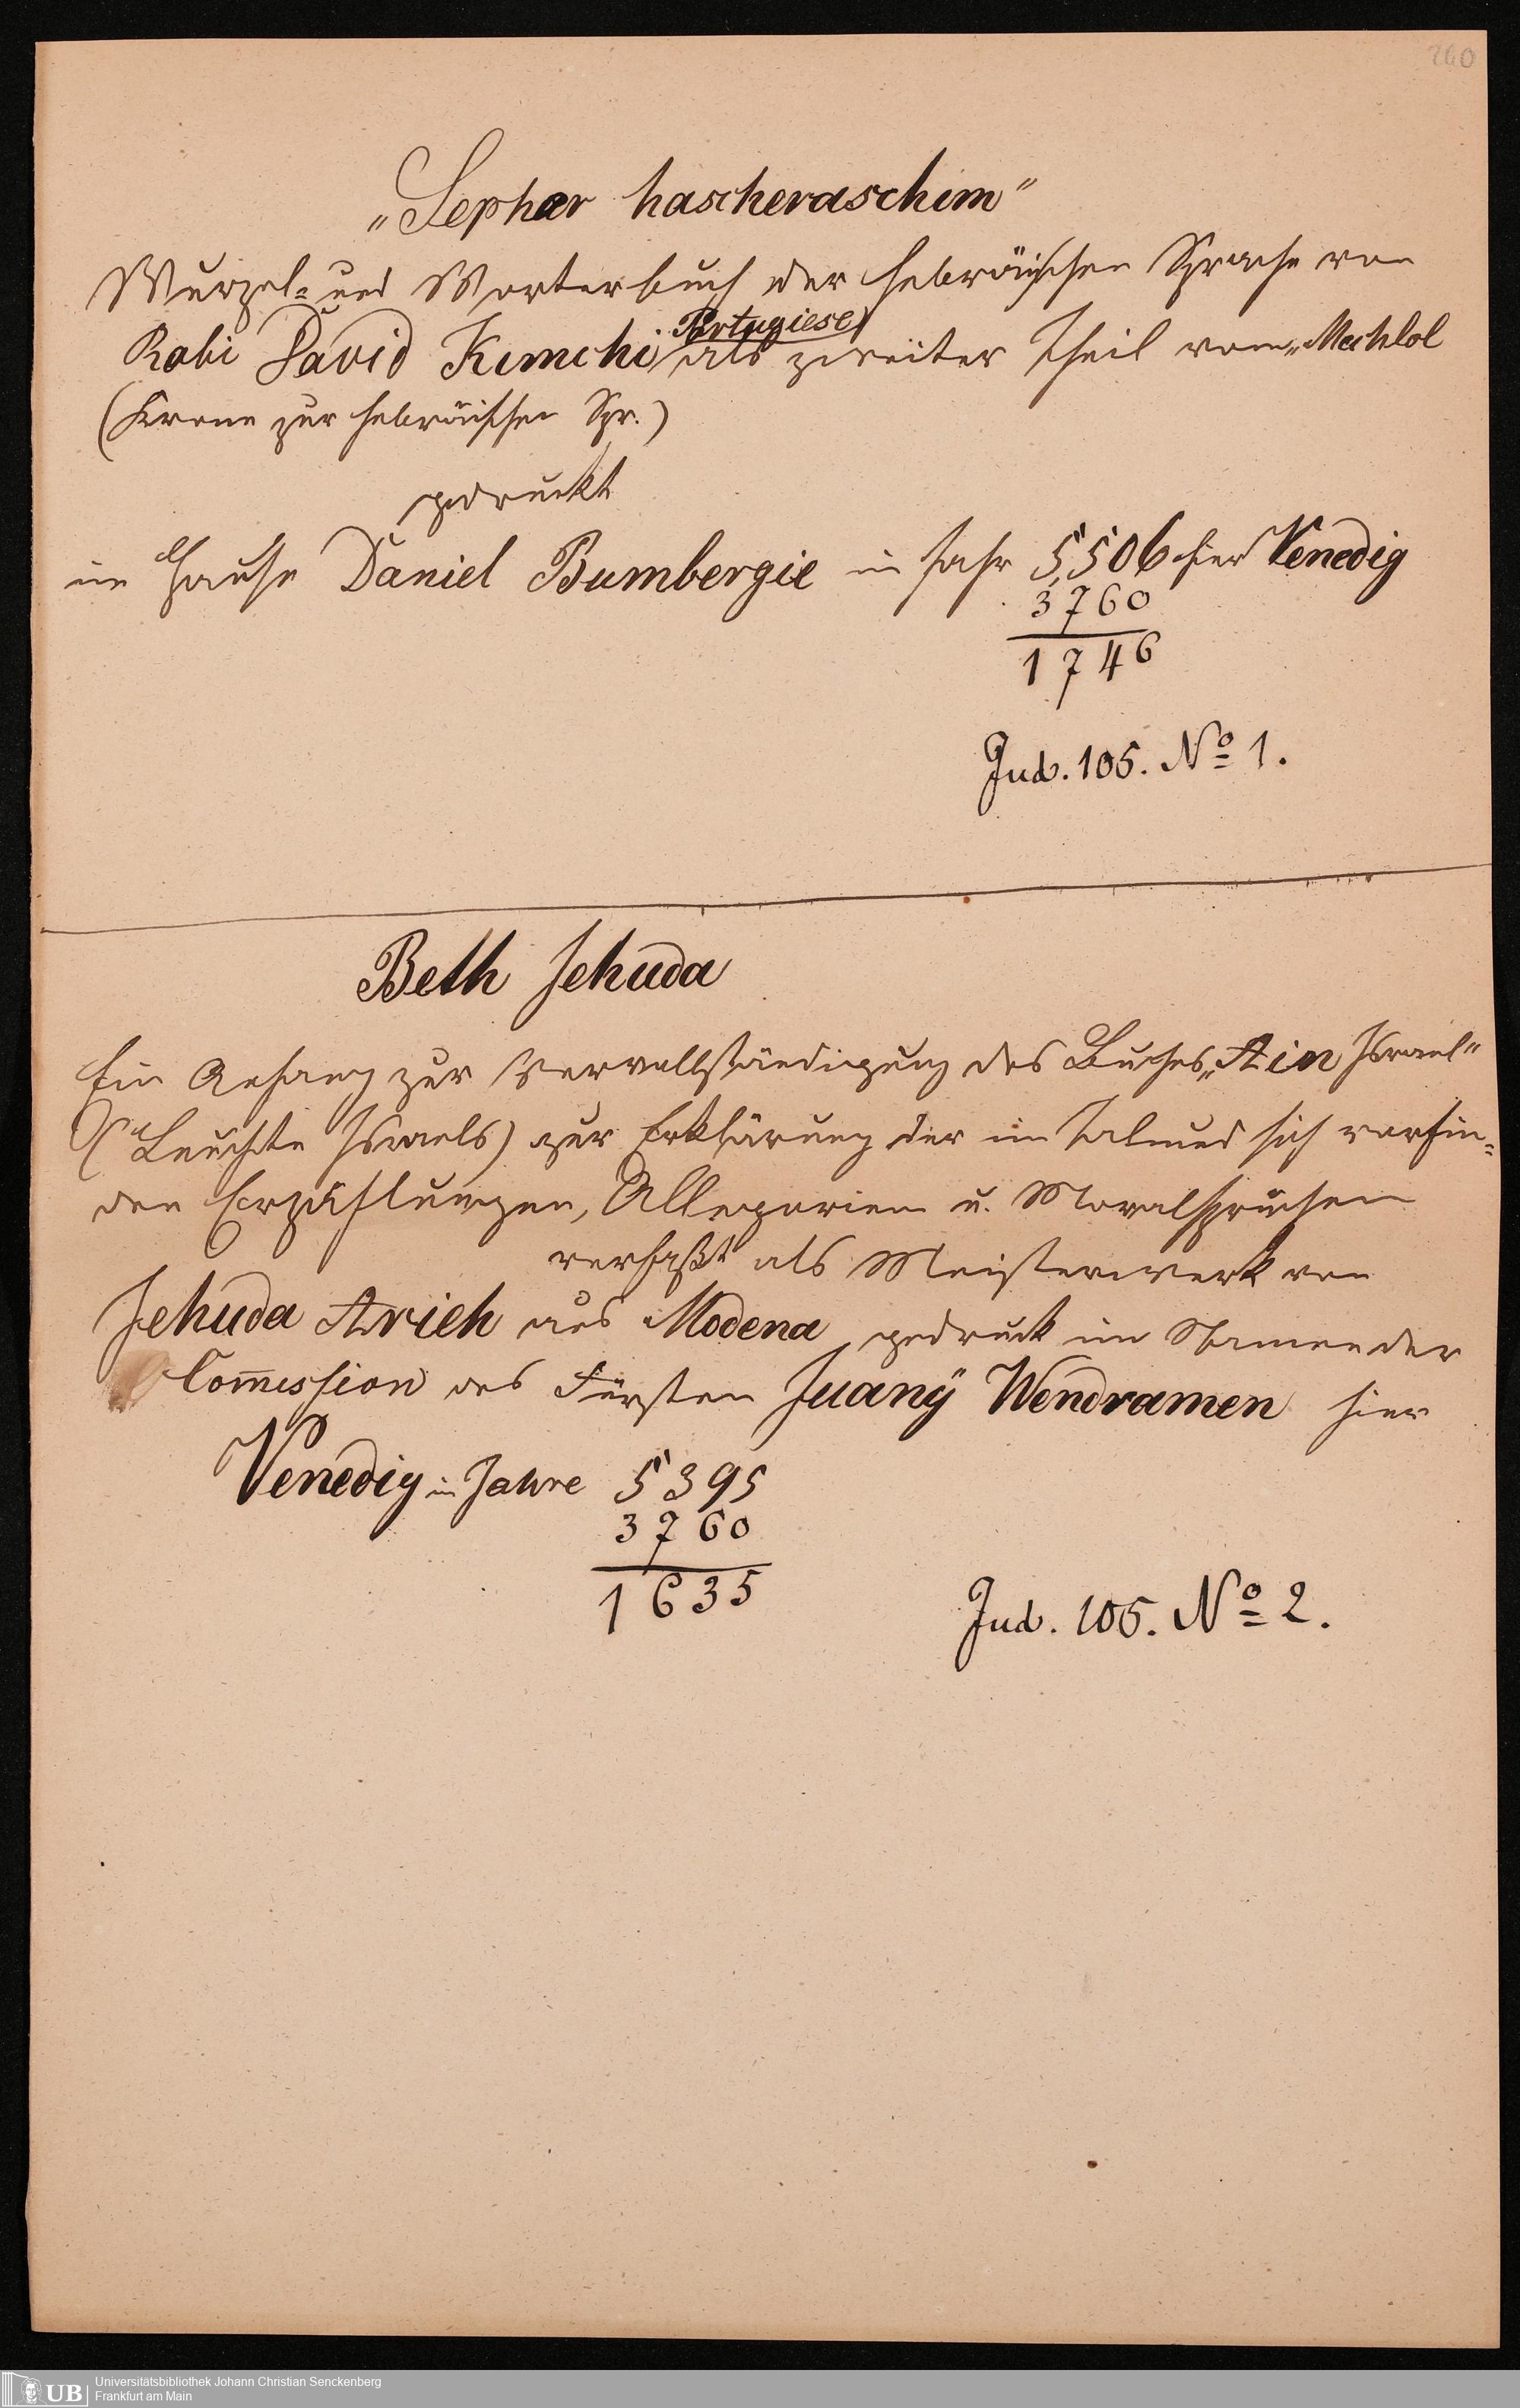 260
„Sepher hascheraschim“
Wurzel- und Worterbuch der hebräischen Sprache von
Portugiese
Rabi David Kimchi als zweiter Theil vom „Mechlol
(Krone zur hebräischen Spr.)
gedruckt
im Hause Daniel Bumbergie im Jahr 5,506 hier Venedig
3760
1746
Jud. 105. No 1.
Beth Jehuda
Ein Anhang zur Vervollständigung des Buches „Ain Israel“
(Leuchte Israels) zur Erklärung der im Talmud sich vorfin-
den Erzählungen, Allegorien u. Moralsprüchen
verfaßt als Meisterwerk von
Jehuda Arieh aus Modena gedruck im Namen der
Com̅ission des Fürsten Juanÿ Wendramen hier
Venedig in Jahre 5395
3760
1635
Jud. 105. No 2.
UB Universitätsbibliothek Johann Christian Senckenberg
Frankfurt am Main